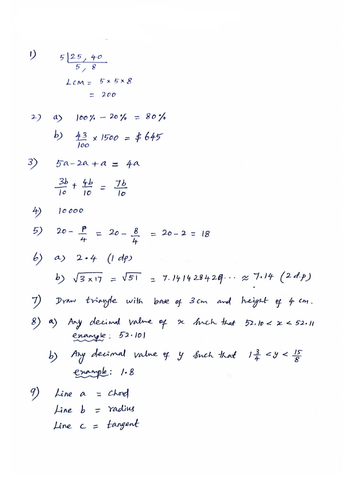 1) 5 | 25, 40
5, 8
LCM = 5 x 5 x 8
= 200
2) a) 100% - 20% = 80%
b) 43/100 x 1500 = $645
3) 5a - 2a + a = 4a
3b/10 + 4b/10 = 7b/10
4) 10000
5) 20 - P/4 = 20 - 8/4 = 20 - 2 = 18
6) a) 2.4 (1 dp)
b) √3×17 = √51 = 7.141428429... ≈ 7.14 (2 dp)
7) Draw triangle with base of 3 cm and height of 4 cm.
8) a) Any decimal value of x such that 52.10 < x < 52.11
example: 52.101
b) Any decimal value of y such that 1 3/4 < y < 15/8
example: 1.8
9) Line a = chord
Line b = radius
Line c = tangent